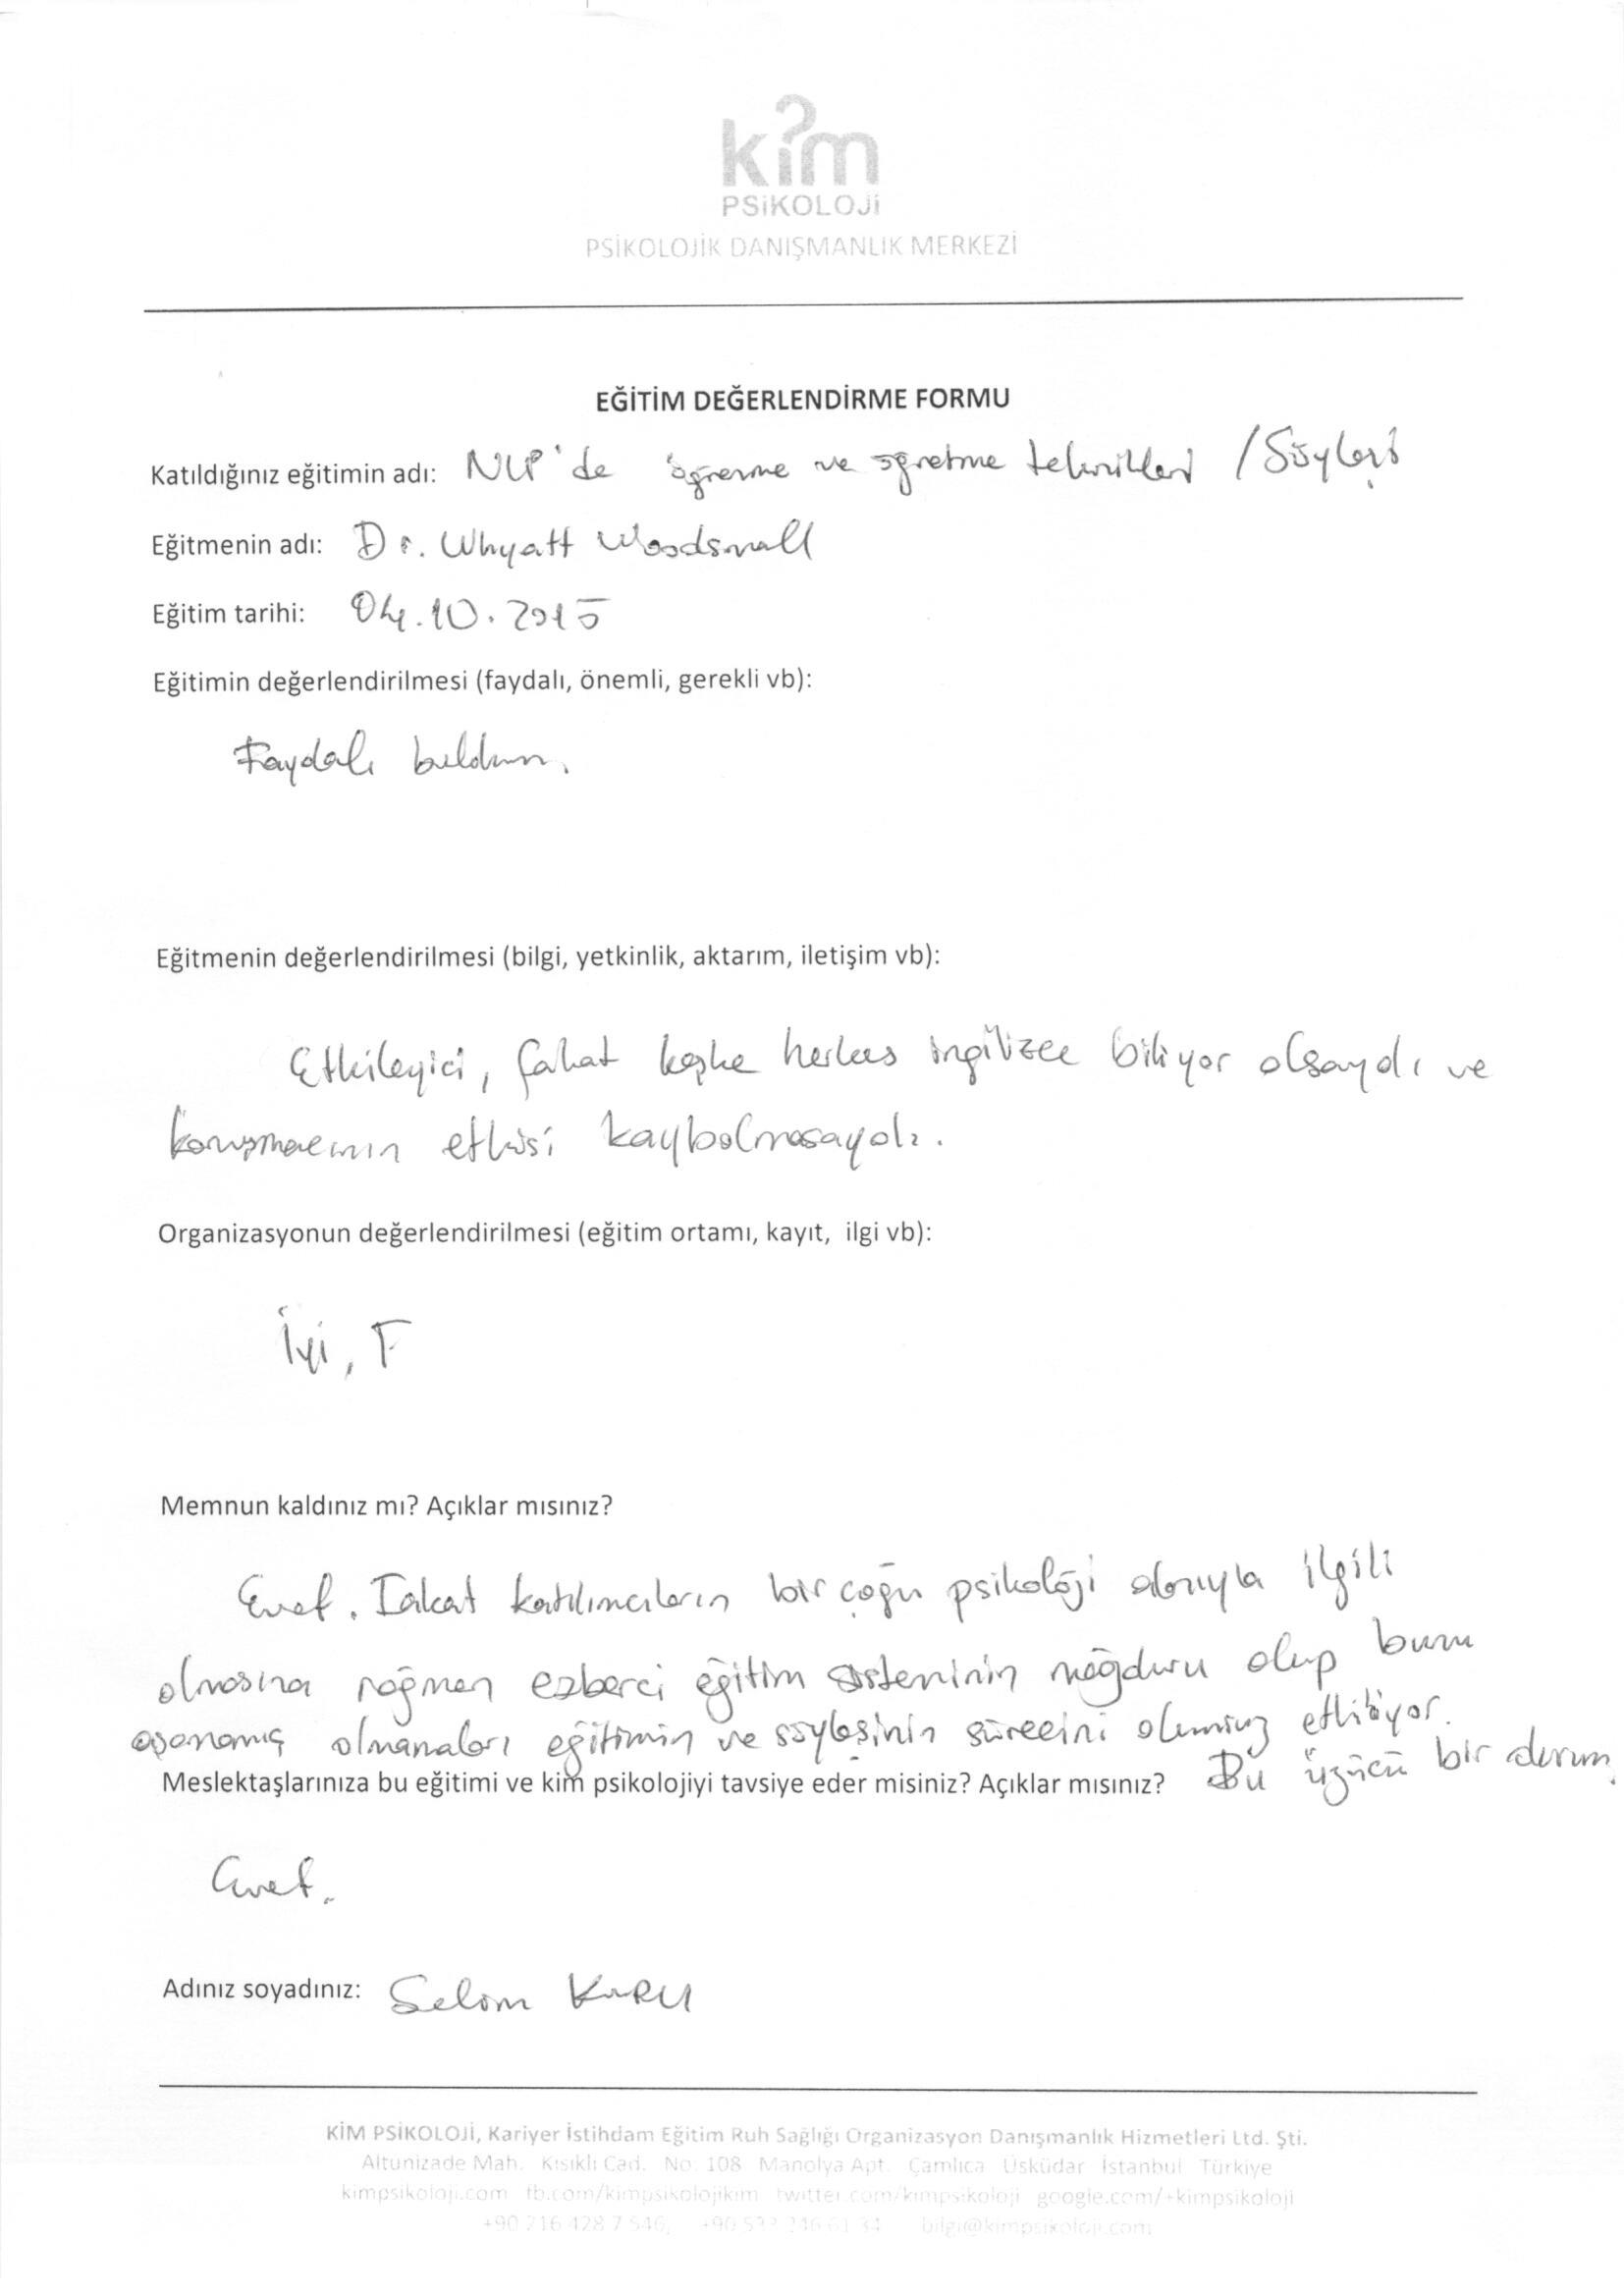 kim
PSiKOLOJi
PSİKOLOJİK DANIŞMANLIK MERKEZİ
EĞİTİM DEĞERLENDİRME FORMU
Katıldığınız eğitimin adı: NLP'de öğrenme ve öğretme teknikleri / Söyleşi
Eğitmenin adı: Dr. Whyatt Woodsmall
Eğitim tarihi: 04.10.2015
Eğitimin değerlendirilmesi (faydalı, önemli, gerekli vb):
Faydalı buldum.
Eğitmenin değerlendirilmesi (bilgi, yetkinlik, aktarım, iletişim vb):
Etkileyici, fakat keşke herkes ingilizce biliyor olsaydı ve
konuşmacının etkisi kaybolmasaydı.
Organizasyonun değerlendirilmesi (eğitim ortamı, kayıt, ilgi vb):
İyi, F
Memnun kaldınız mı? Açıklar mısınız?
Evet. Fakat katılımcıların bir çoğu psikoloji alanıyla ilgili
olmasına rağmen ezberci eğitim sisteminin mağduru olup bunu
aşamamış olmamaları eğitimin ve söyleşinin sürecini olumsuz etkiliyor.
Meslektaşlarınıza bu eğitimi ve kim psikolojiyi tavsiye eder misiniz? Açıklar mısınız? Bu üzücü bir durum.
Evet.
Adınız soyadınız: Selam KURU
KİM PSİKOLOJİ, Kariyer İstihdam Eğitim Ruh Sağlığı Organizasyon Danışmanlık Hizmetleri Ltd. Şti.
Altunizade Mah. Kısıklı Cad. No: 108 Manolya Apt. Çamlıca Üsküdar İstanbul Türkiye
kimpsikoloji.com fb.com/kimpsikolojikim twitter.com/kimpsikoloji google.com/+kimpsikoloji
+90 216 428 7 546, bilgi@kimpsikoloji.com